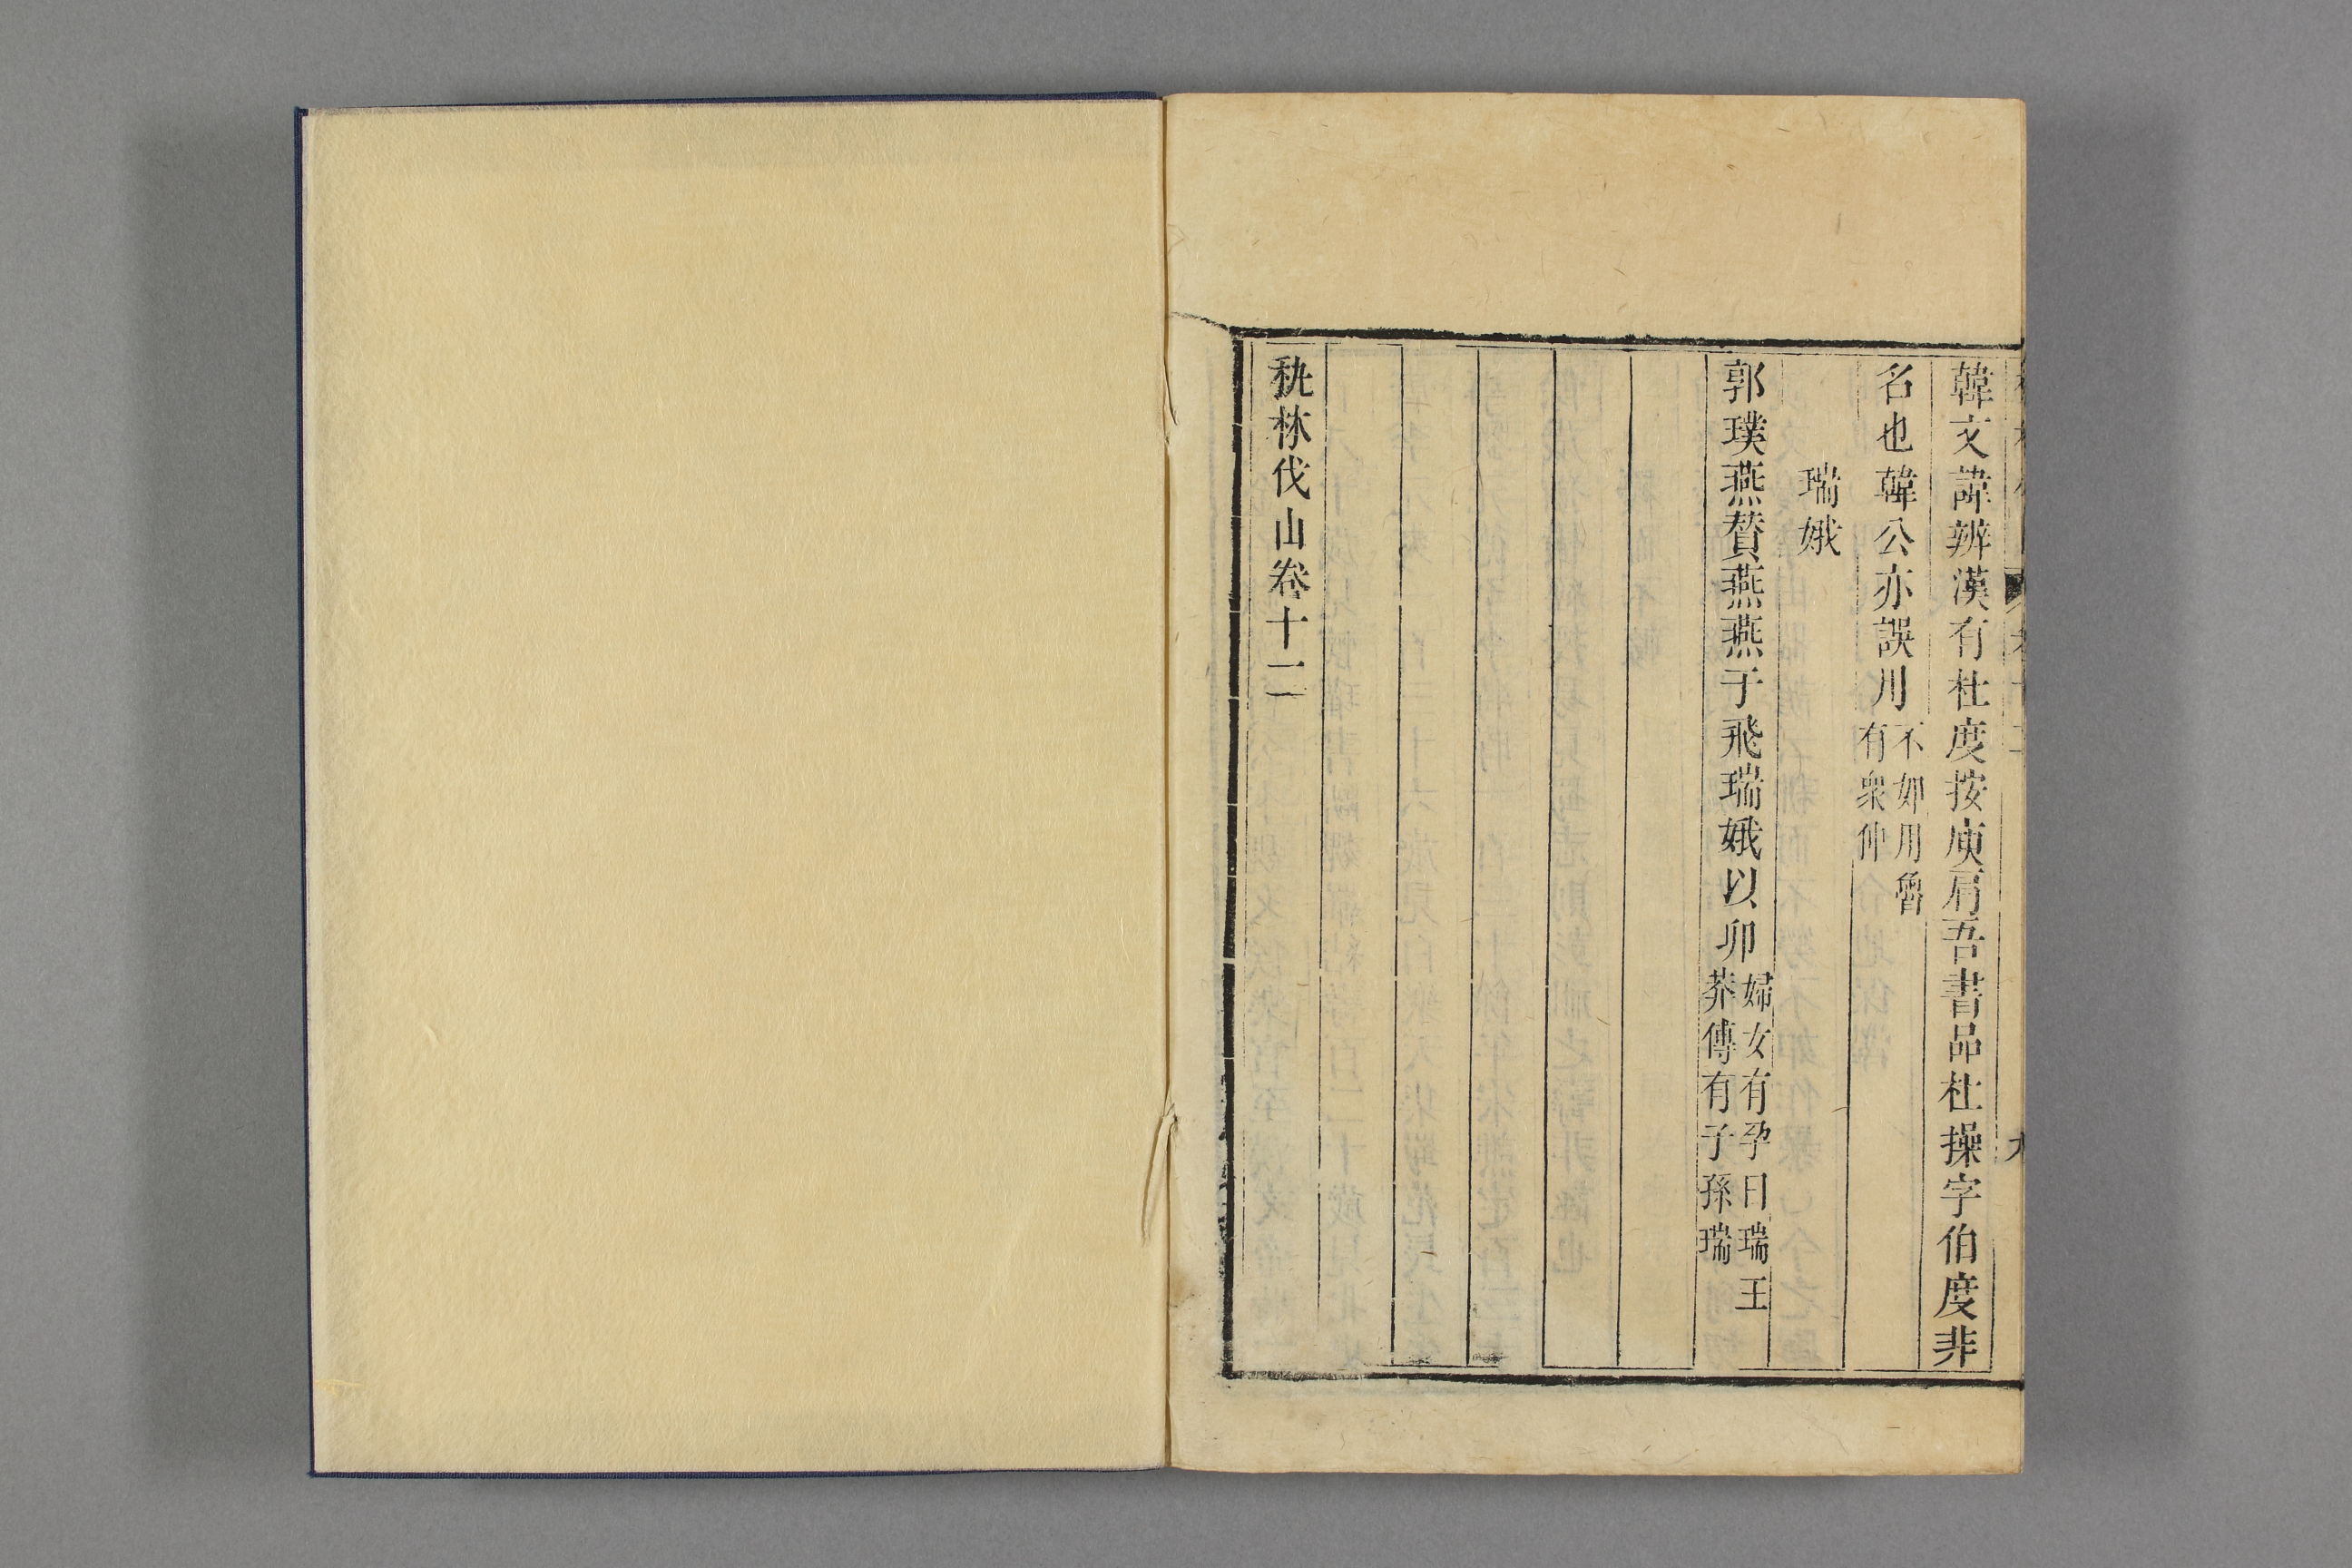 韓文諱辨漢有杜度按庾肩吾書品杜操字伯度非
名也韓公亦誤用不如用魯有衆仲
瑞娥
郭璞燕贊燕燕于飛瑞娥以卵婦女有孕曰瑞王莽傳有子孫瑞
秇林伐山卷十二